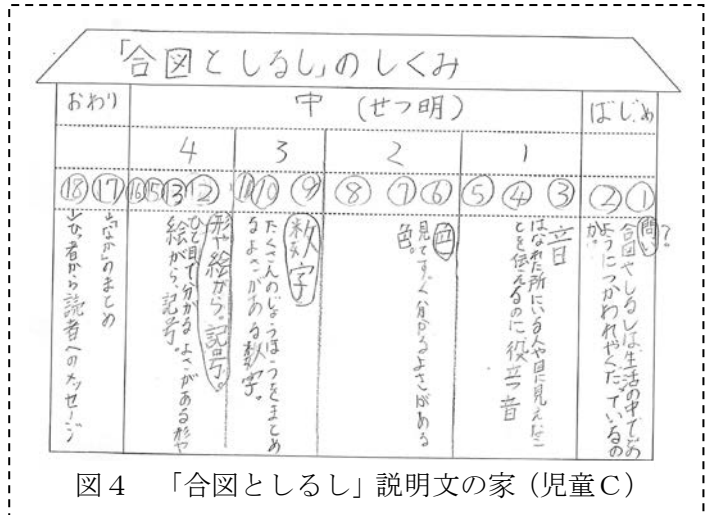 「合図としるし」のしくみ
はじめ
中（せつ明）
おわり
1
2
3
4
①
②
③
④
⑤
⑥
⑦
⑧
⑨
⑩
⑪
⑫
⑬
⑮
⑯
⑰
⑱
？
問い
合図やしるしは生活の中でどの
ようにつかわれやくだっているの
か。
音
はなれた所にいる人や目に見えないこ
とを伝えるのに役立つ音
色
見てすぐ分かるよさがある
色。
数字
たくさんのじょうほうをまとめ
るよさがある数字。
形や絵がら。記号。
ひと目で分かるよさがある形や
絵がら、記号。
「なか」のまとめ
ひっ者から読者へのメッセージ
図4 「合図としるし」説明文の家（児童C）